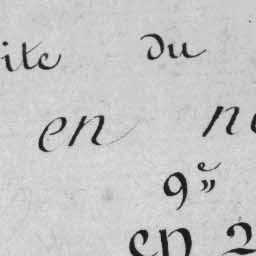 ite du
en n
9e»
en 2